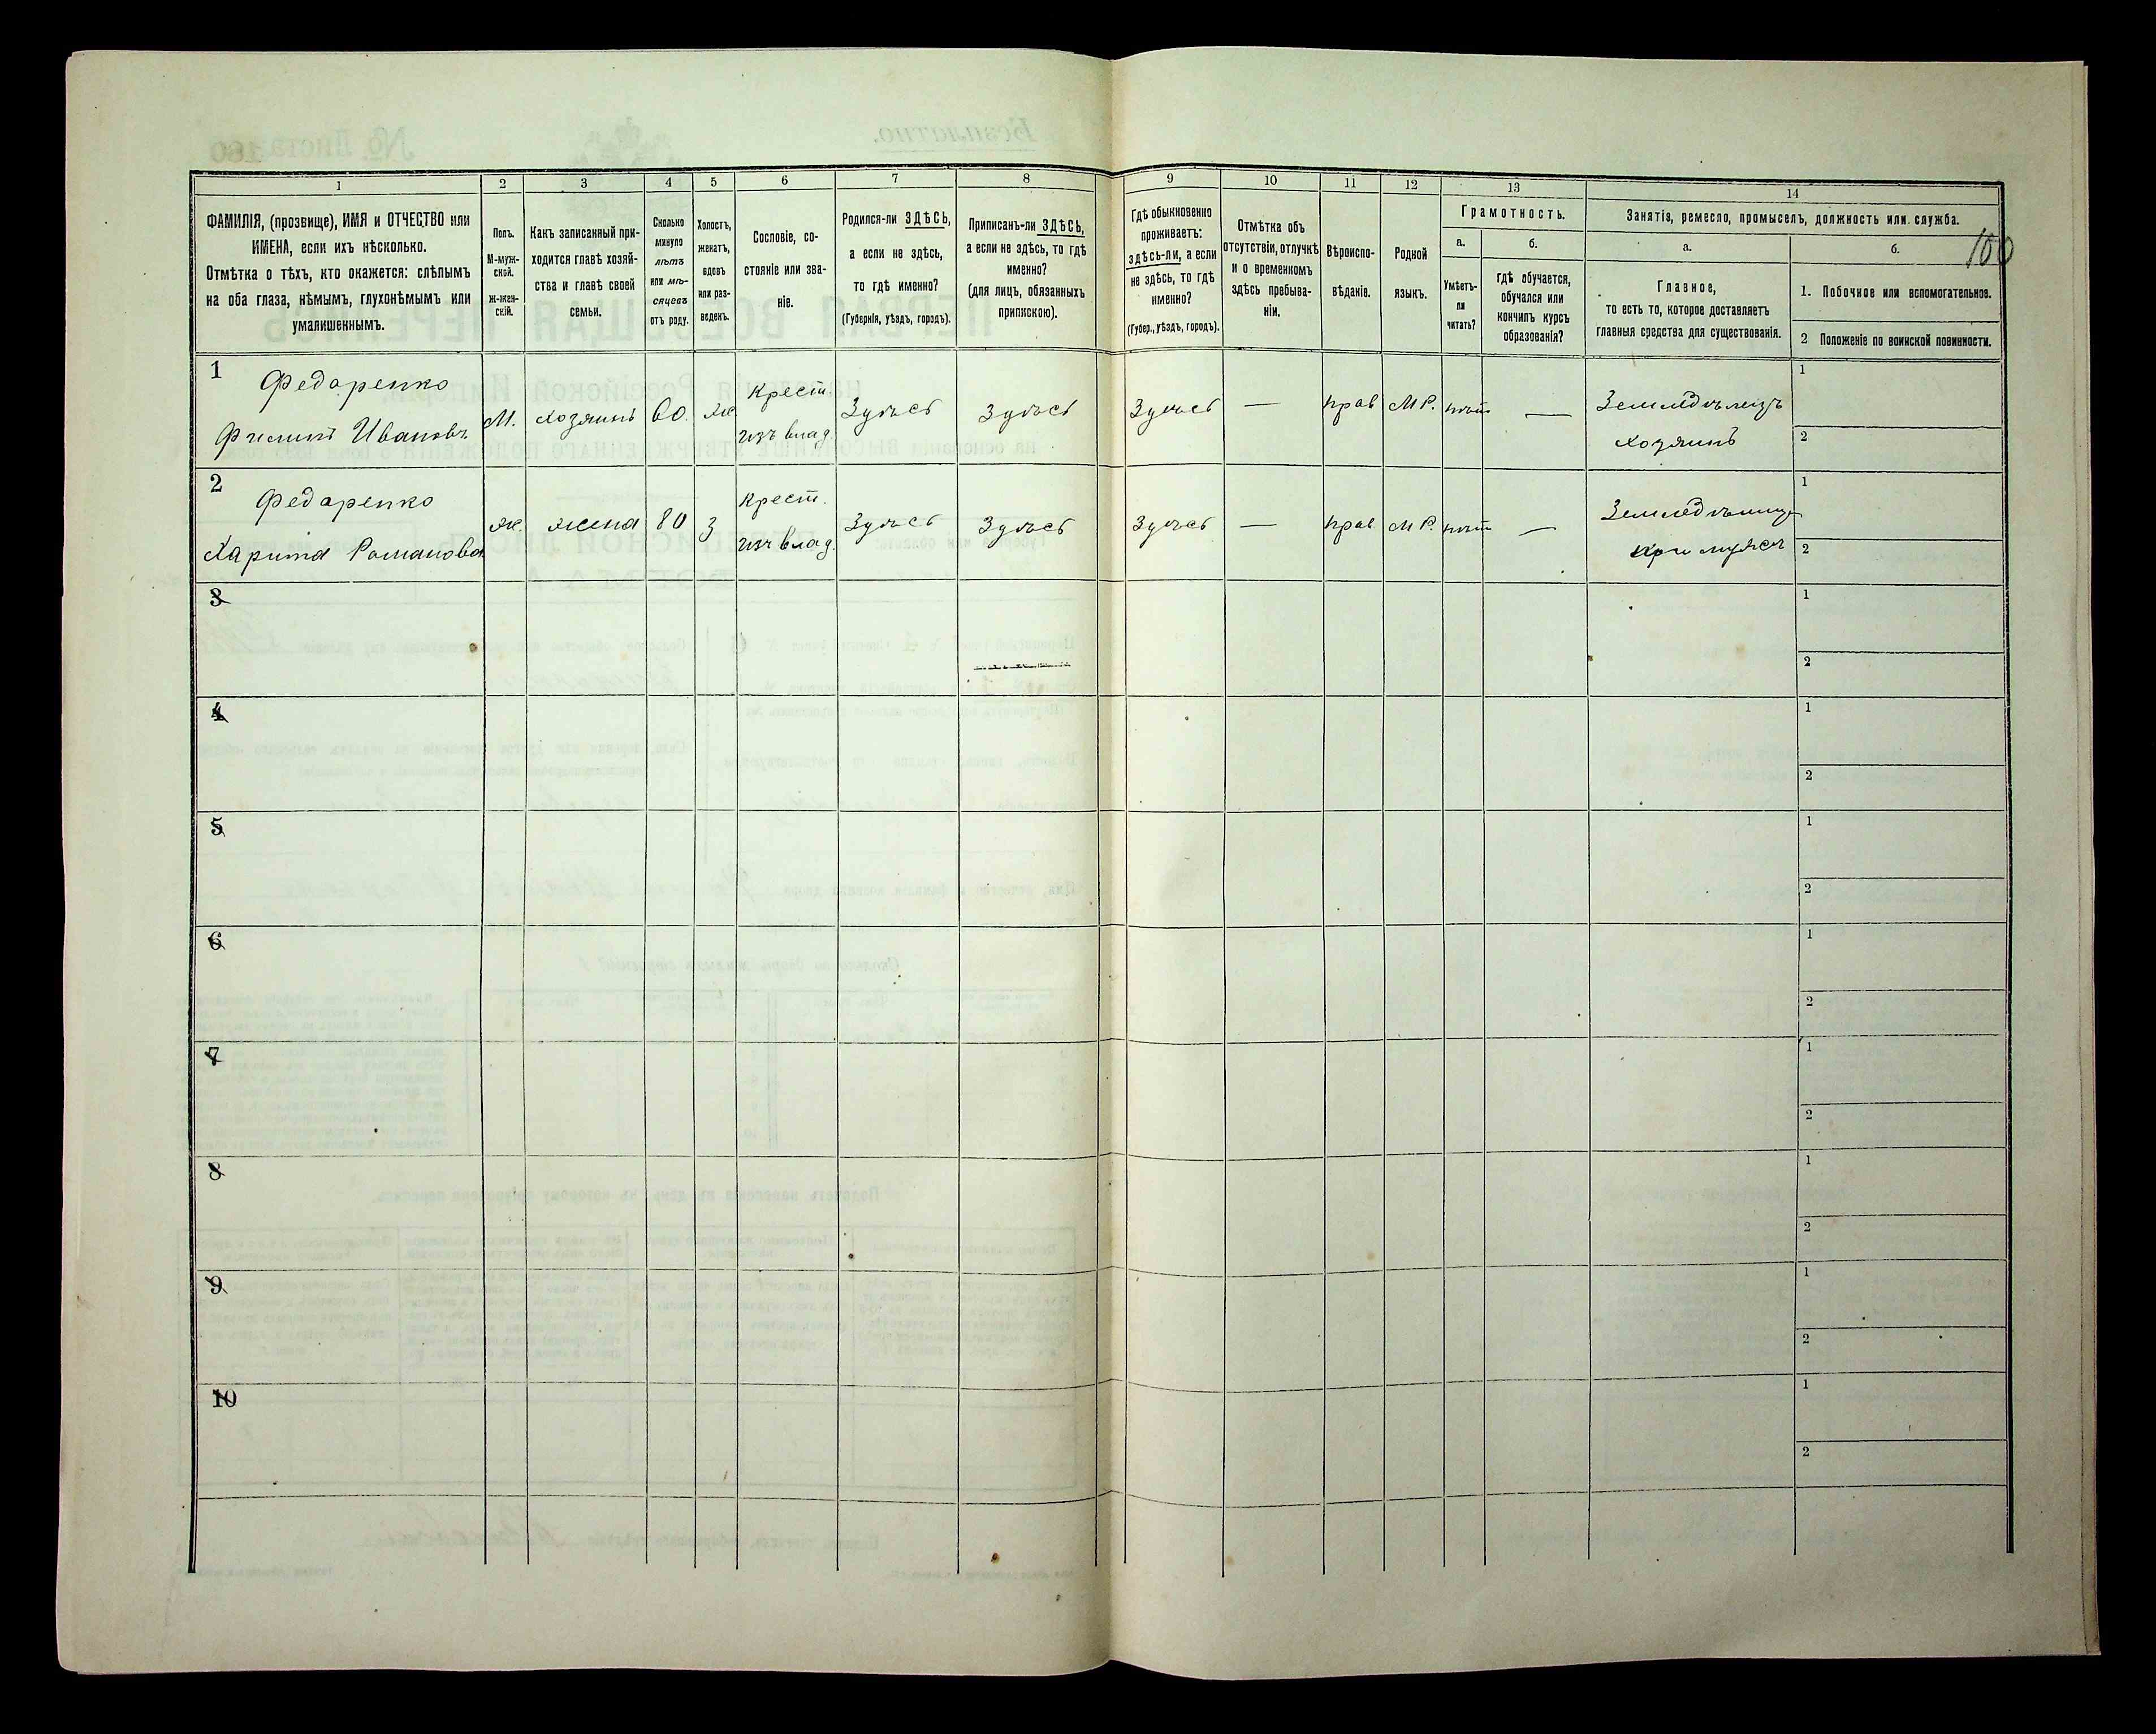 1
2
3
4
5
6
7
8
9
10
11
12
13
14
ФАМИЛІЯ, (прозвище), ИМЯ и ОТЧЕСТВО или
ИМЕНА, если ихъ нѣсколько.
Отмѣтка о тѣхъ, кто окажется: слѣпымъ
на оба глаза, нѣмымъ, глухонѣмымъ или
умалишеннымъ.
Полъ.
М-муж-
ской.
Ж-жен-
скій.
Какъ записанный при-
ходится главѣ хозяй-
ства и главѣ своей
семьи.
Сколько
минуло
лѣтъ
или мѣ-
сяцевъ
отъ роду.
Холостъ,
женатъ,
вдовъ
или раз-
веденъ.
Сословіе, со-
стояніе или зва-
ніе.
Родился-ли ЗДѢСЬ,
а если не здѣсь,
то гдѣ именно?
(Губернія, уѣздъ, городъ).
Приписанъ-ли ЗДѢСЬ,
а если не здѣсь, то гдѣ
именно?
(для лицъ, обязанныхъ
припискою).
Гдѣ обыкновенно
проживаетъ:
здѣсь-ли, а если
не здѣсь, то гдѣ
именно?
(Губер., уѣздъ, городъ).
Отмѣтка объ
отсутствіи, отлучкѣ
и о временномъ
здѣсь пребыва-
ніи.
Вѣроиспо-
вѣданіе.
Родной
языкъ.
Грамотность.
а.
Умѣетъ-
ли
читать?
б.
гдѣ обучается,
обучался или
кончилъ курсъ
образованія?
Занятія, ремесло, промыселъ, должность или служба.
а.
Главное,
то есть то, которое доставляетъ
главныя средства для существованія.
б.
100
1. Побочное или вспомогательное.
2 Положеніе по воинской повинности.
1
Федаренко
Филипъ Ивановъ
М.
хозяинъ
60.
ж
Крест.
изъ влад.
Здѣсь
Здѣсь
Здѣсь
—
прав
М Р.
нѣт
—
Земледѣлецъ
хозяинъ
1
2
2
Федаренко
Харита Романова
ж.
жена
80
З
Крест.
изъ влад.
Здѣсь
Здѣсь
Здѣсь
—
прав
М Р.
нѣт
—
при мужѣ
1
2
3
1
2
4
1
2
5
1
2
6
1
2
7
1
2
8
1
2
9
1
2
10
1
2